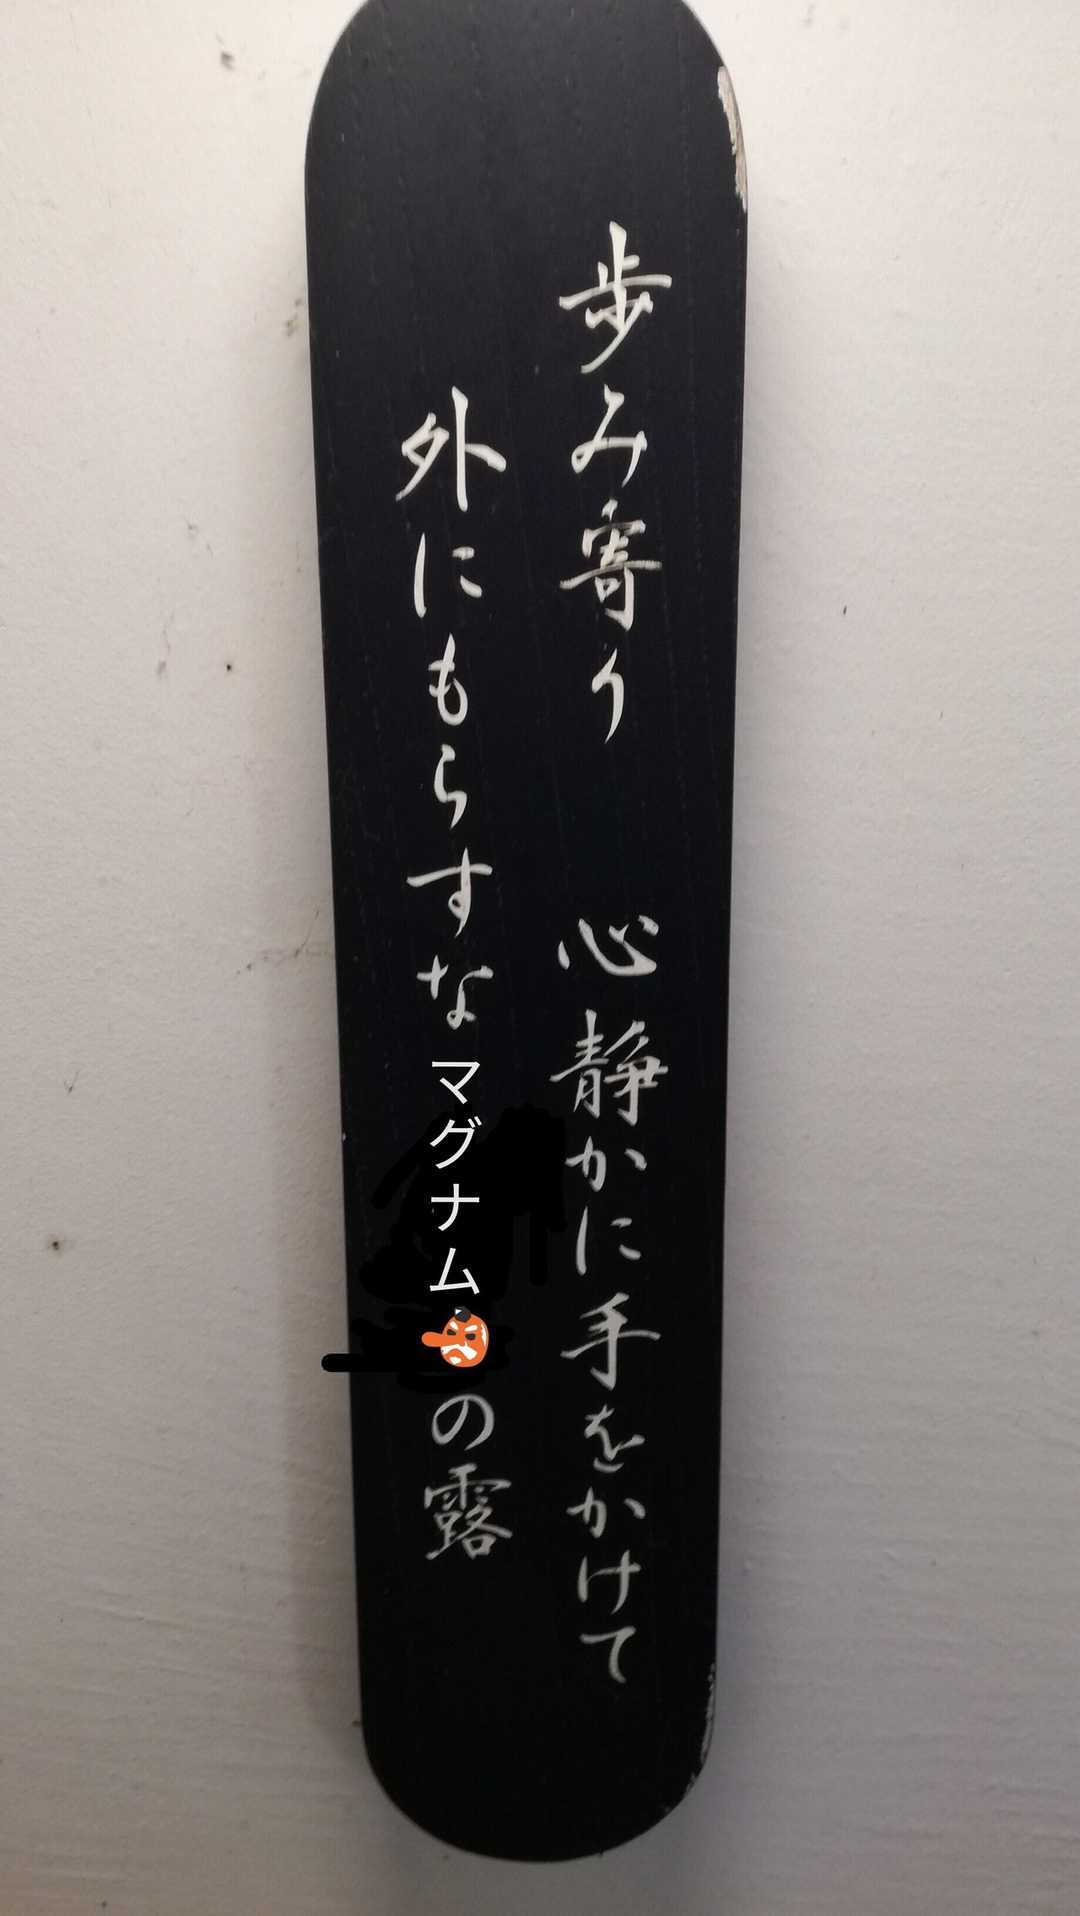 歩み寄り 心静かに手をかけて
外にもらすなマグナム👺の露